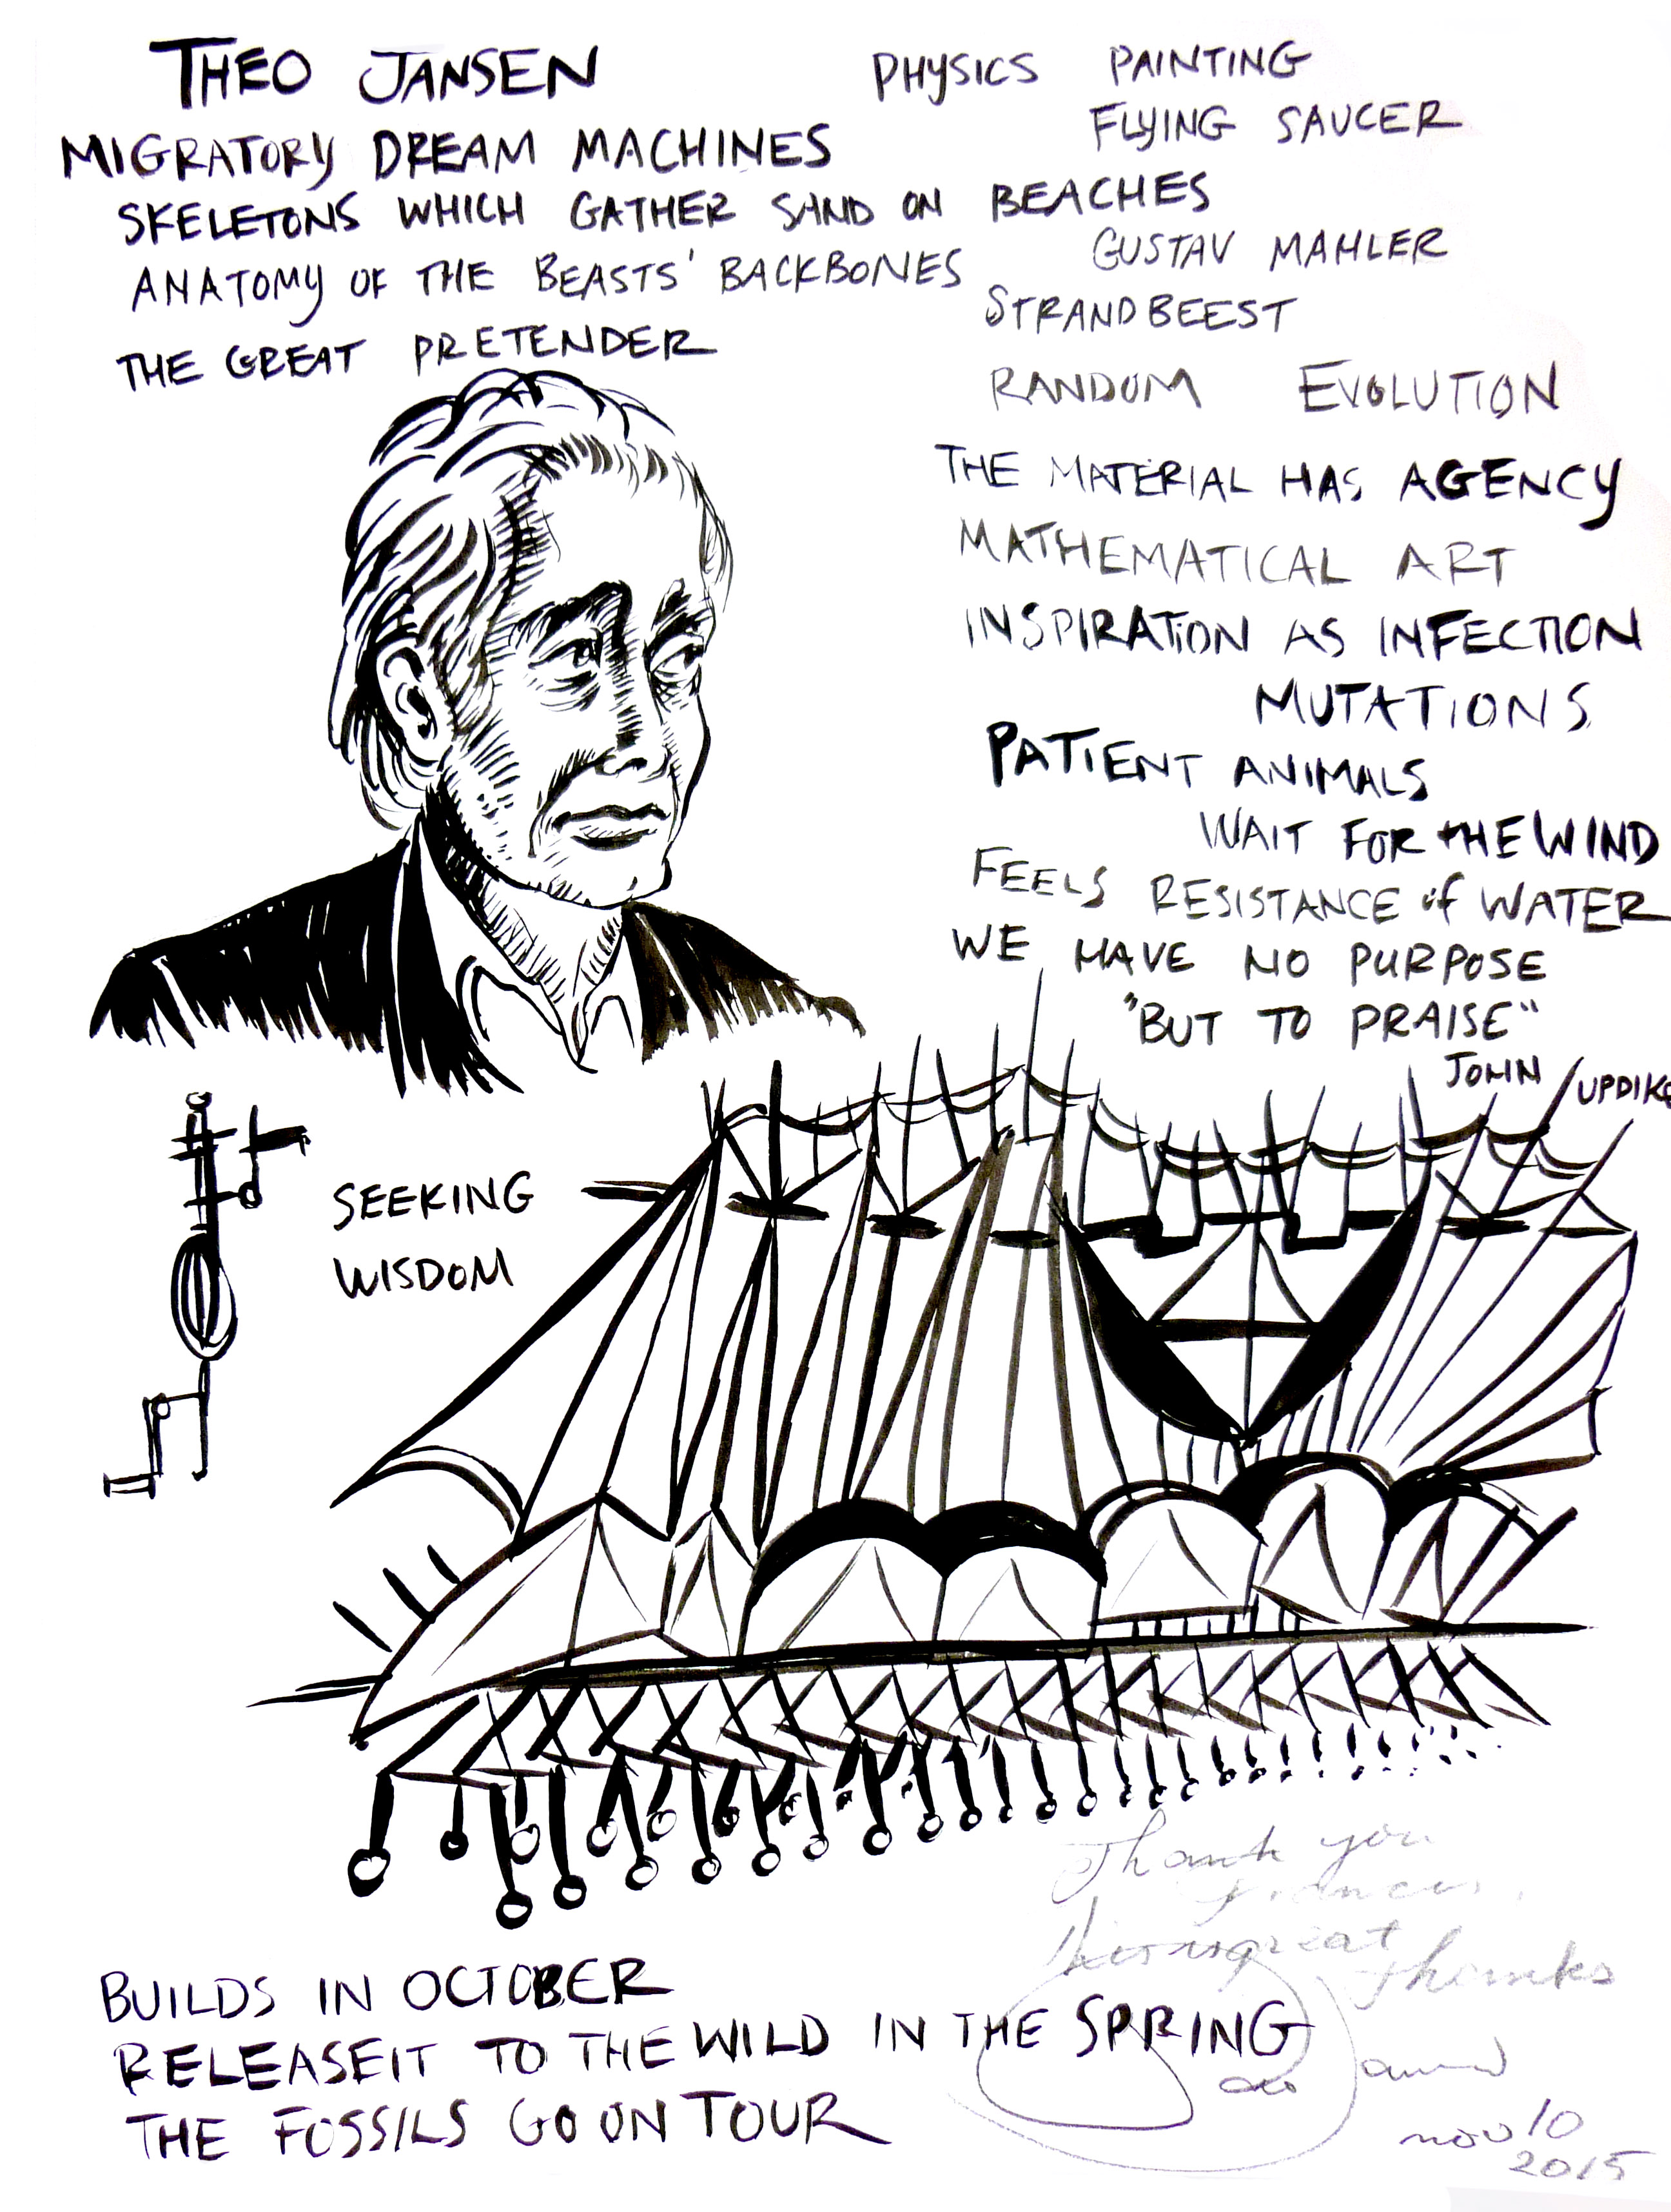 THEO JANSEN
MIGRATORY DREAM MACHINES
SKELETONS WHICH GATHER SAND ON BEACHES
ANATOMY OF THE BEASTS' BACKBONES
THE GREAT PRETENDER
PHYSICS PAINTING
FLYING SAUCER
GUSTAV MAHLER
STRANDBEEST
RANDOM EVOLUTION
THE MATERIAL HAS AGENCY
MATHEMATICAL ART
INSPIRATION AS INFECTION
MUTATIONS
PATIENT ANIMALS
WAIT FOR tHE WIND
FEELS RESISTANCE of WATER
WE HAVE NO PURPOSE
"BUT TO PRAISE"
JOHN UPDIKE
SEEKING
WISDOM
Thank you
great
thanks
BUILDS IN OCTOBER
RELEASEIT TO THE WILD IN THE SPRING
THE FOSSILS GO ON TOUR
nov 10
2015